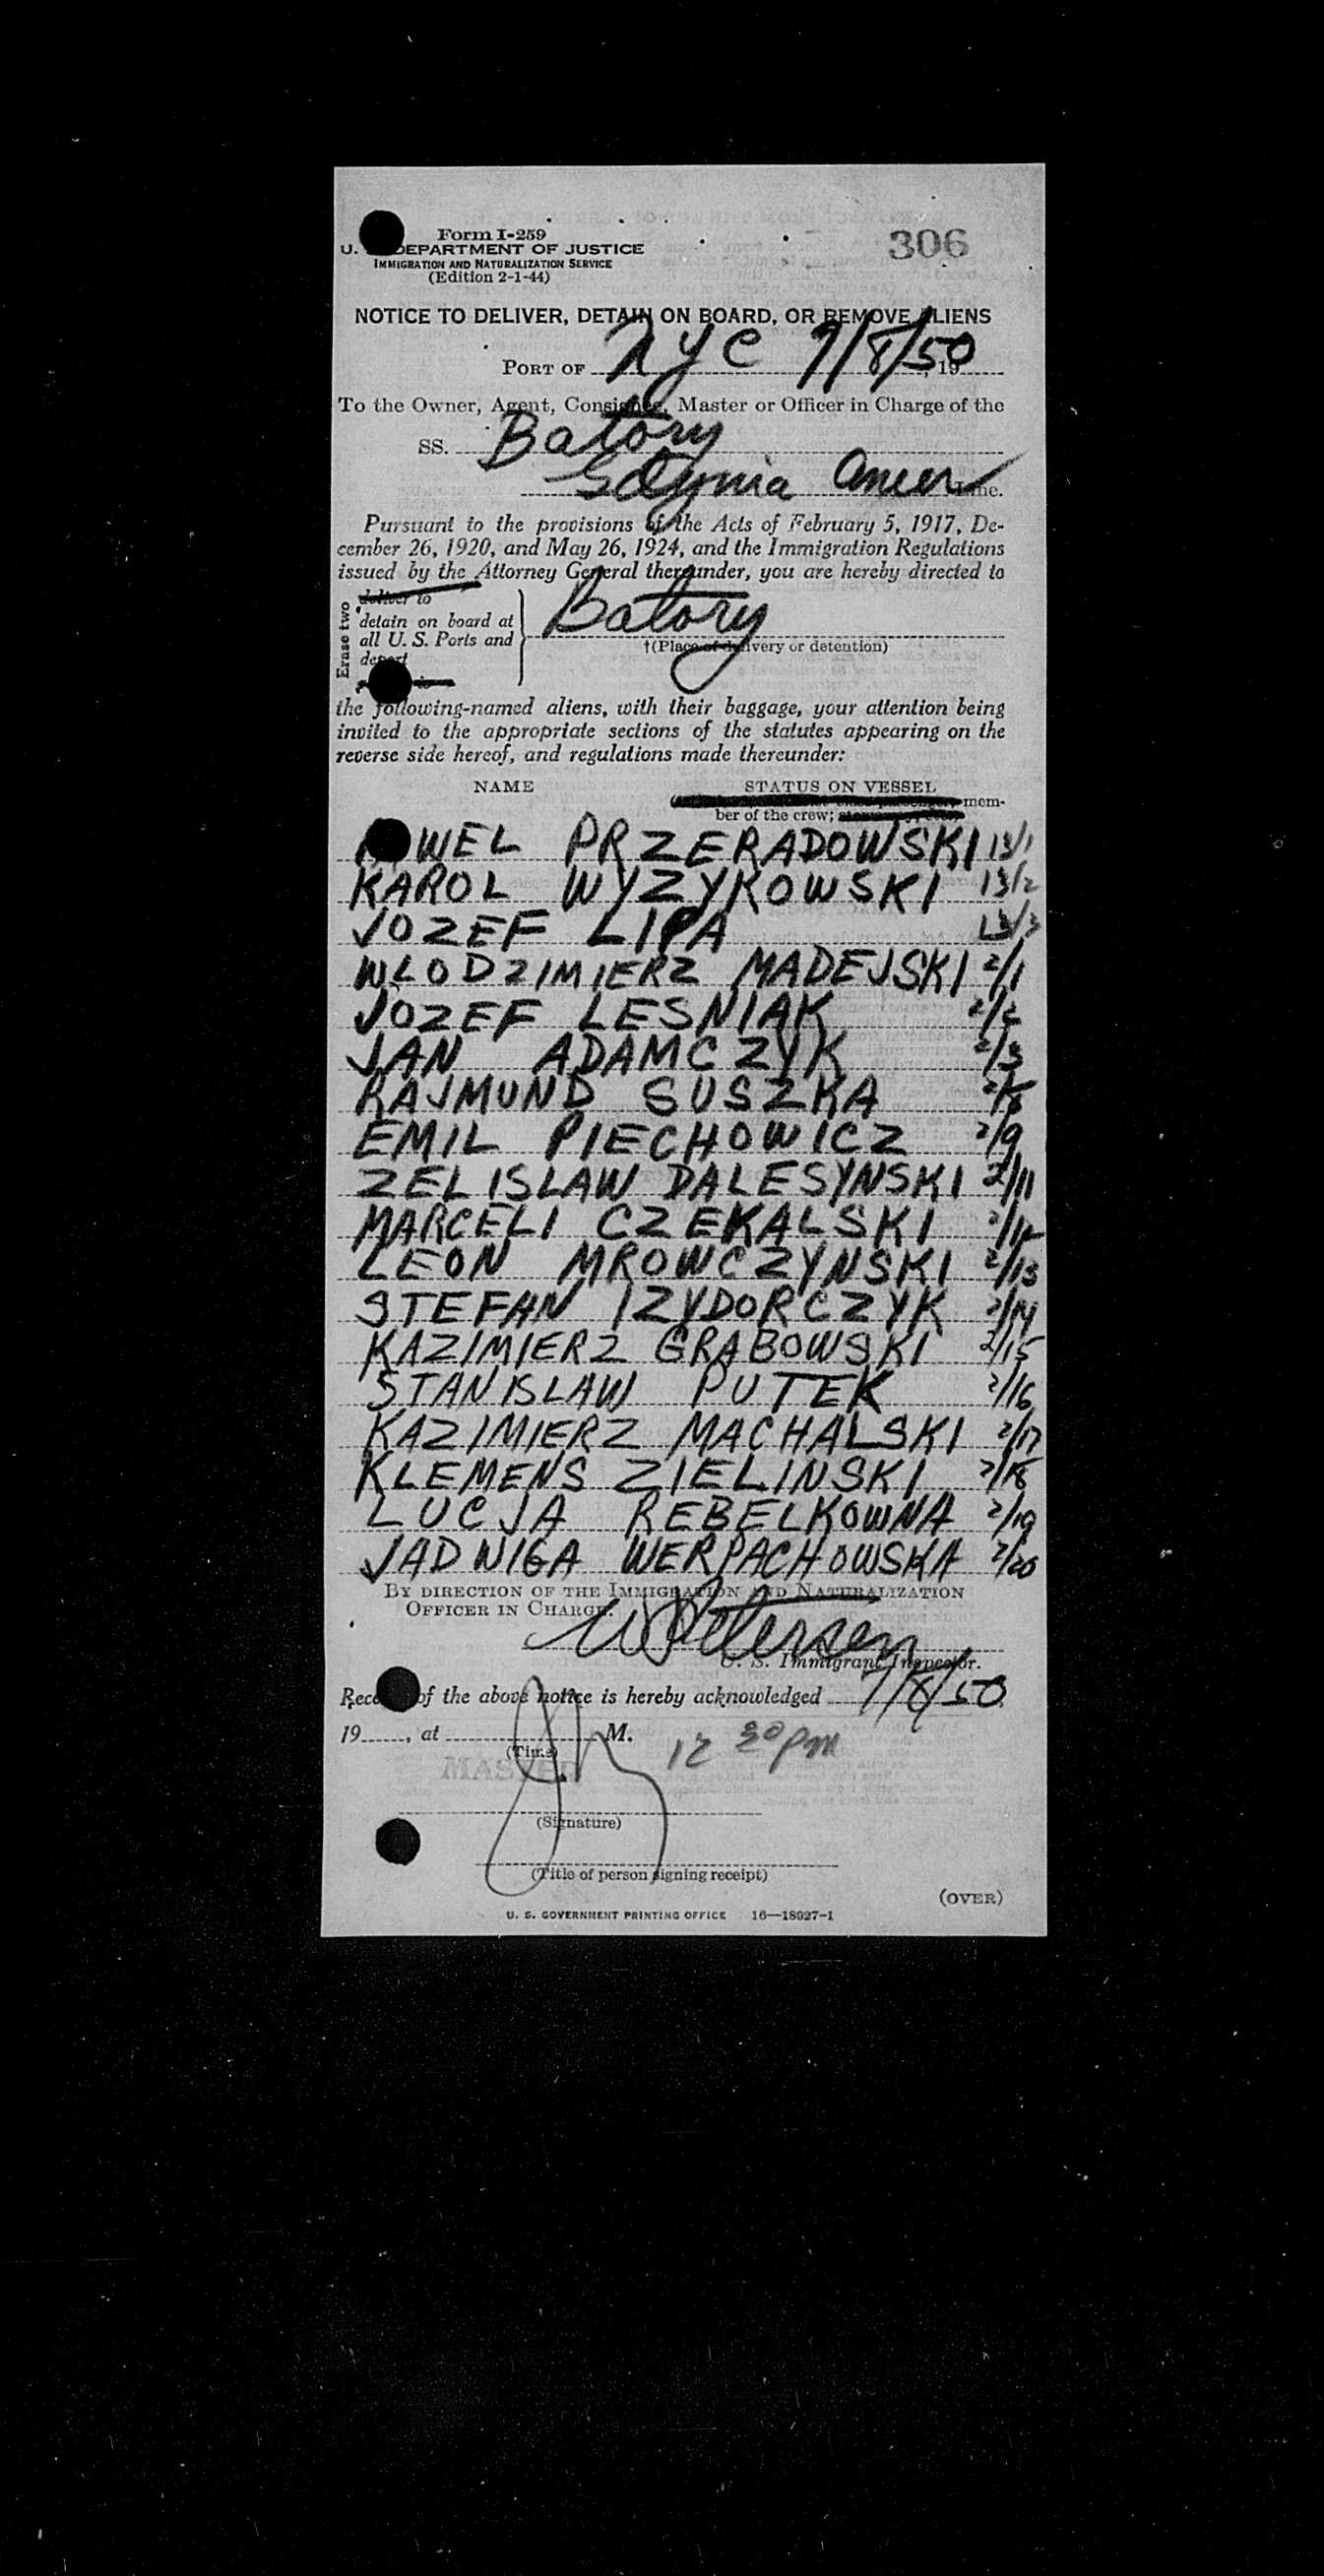 Form I-259
306
U. DEPARTMENT OF JUSTICE
IMMIGRATION AND NATURALIZATION SERVICE
(Edition 2-1-44)
NOTICE TO DELIVER, DETAIN ON BOARD, OR REMOVE ALIENS
PORT OF NYC 7/8/50, 19
To the Owner, Agent, Consignee, Master or Officer in Charge of the
SS. Batory
Gdynia Amer Line.
Pursuant to the provisions of the Acts of February 5, 1917, De-
cember 26, 1920, and May 26, 1924, and the Immigration Regulations
issued by the Attorney General thereunder, you are hereby directed to
Erase two
deliver to
detain on board at
all U. S. Ports and
deport
Batory
†(Place of delivery or detention)
the following-named aliens, with their baggage, your attention being
invited to the appropriate sections of the statutes appearing on the
reverse side hereof, and regulations made thereunder:
NAME STATUS ON VESSEL
mem-
ber of the crew;
PRZERADOWSKI 13/1
KAROL WYZYKOWSKI 13/2
JOZEF LIPA 13/3
WLODZIMIERZ MADEJSKI 2/1
JOZEF LESNIAK 2/2
JAN ADAMCZYK 2/3
RAJMUND SUSZKA
EMIL PIECHOWICZ 2/9
ZELISLAW DALESYNSKI 2/11
MARCELI CZEKALSKI 2/12
LEON MROWCZYNSKI 2/13
STEFAN IZYDORCZYK 2/14
KAZIMIERZ GRABOWSKI 2/15
STANISLAW PUTEK 2/16
KAZIMIERZ MACHALSKI 2/17
KLEMENS ZIELINSKI 2/18
LUCJA REBELKOWNA 2/19
JADWIGA WERPACHOWSKA 2/20
BY DIRECTION OF THE IMMIGRATION AND NATURALIZATION
OFFICER IN CHARGE.
W Petersen
U. S. Immigrant Inspector.
of the above notice is hereby acknowledged 7/8/50
19, at M. 12 30 pm
(Time)
MASTER
(Signature)
(Title of person signing receipt)
(OVER)
U. S. GOVERNMENT PRINTING OFFICE 16—18027-1